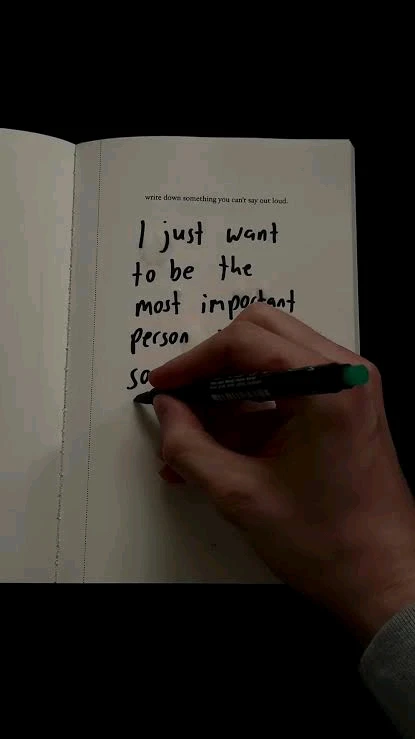 write down something you can't say out loud.
I just want
to be the
most important
person
so